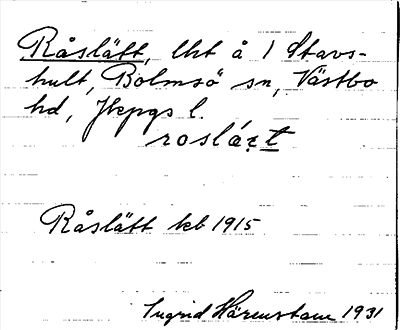 Råslätt, lht å 1 Stavs-
hult, Bolmsö sn, Västbo
hd, Jkpgs l.
roslázt
Råslätt kb 1915
Ingrid Härenstam 1931